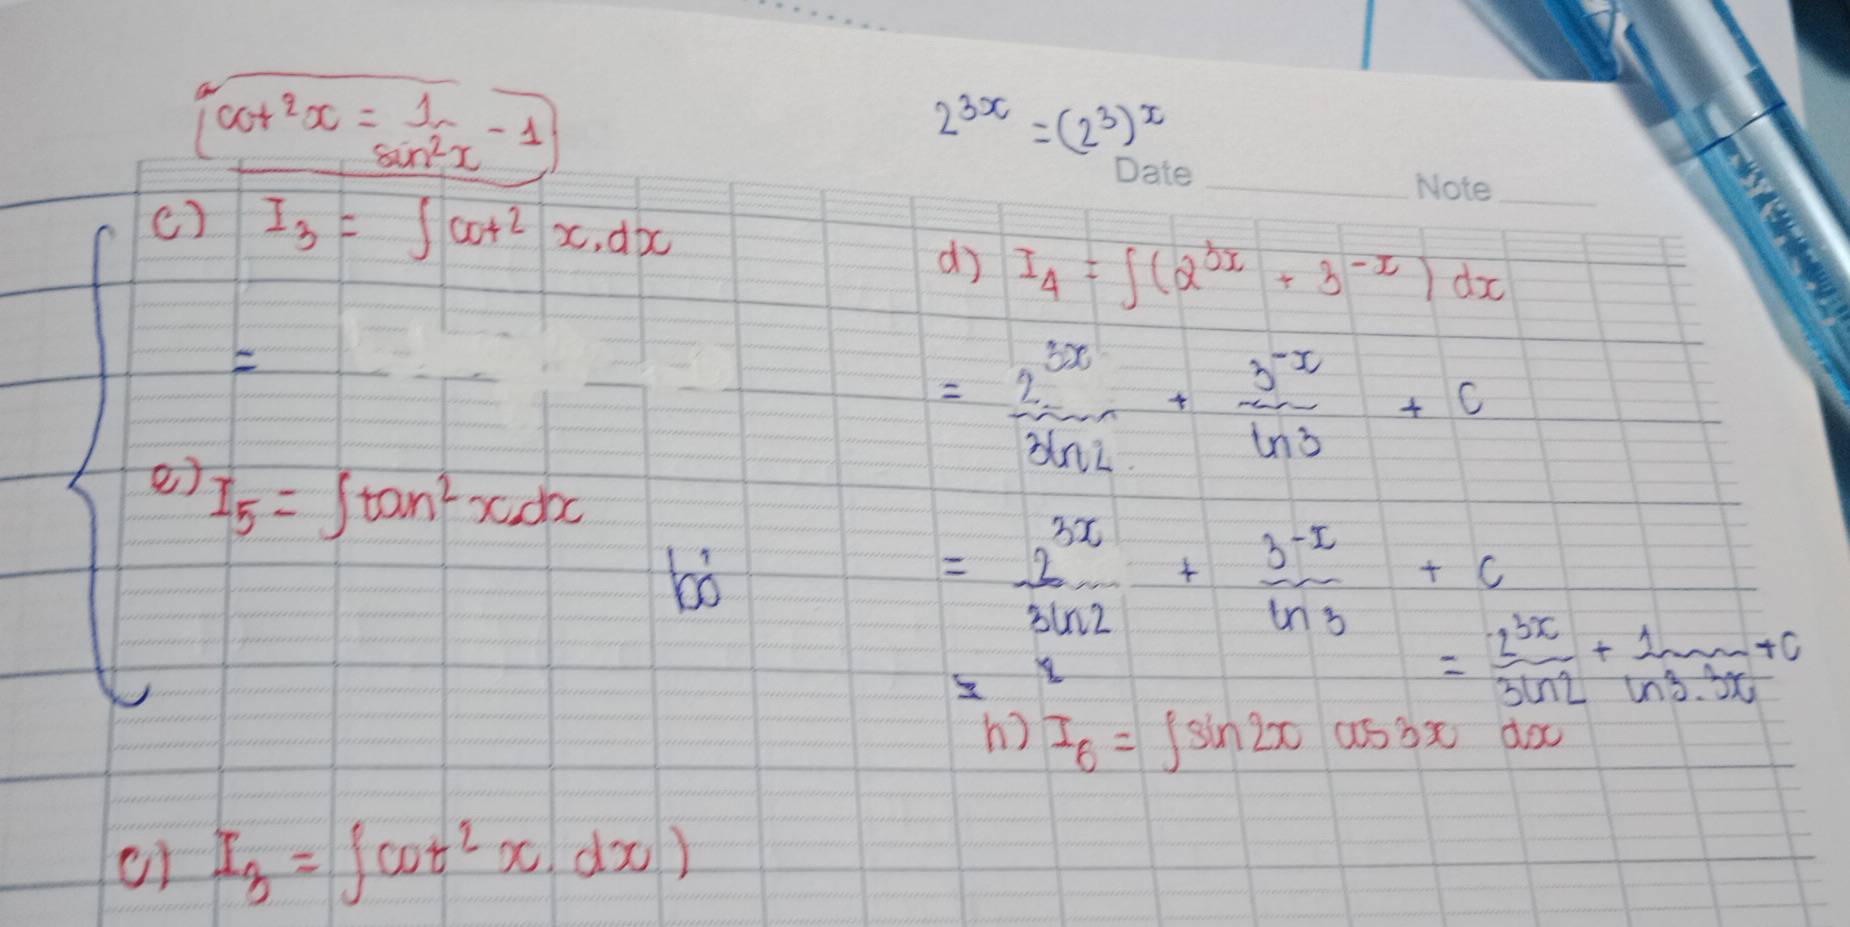 cot²x = 1/sin²x - 1
2^3x = (2³)^x
Date Note
c) I₃ = ∫cot² x.dx
=
e) I₅ = ∫tan² x.dx
bỏ
d) I₄ = ∫(2^3x + 3^-x) dx
= 2^3x/3ln2 + 3^-x/ln3 + C
= 2^3x/3ln2 + 3^-x/ln3 + C
= 2^3x/3ln2 + 1/ln3.3x + C
=
h) I₆ = ∫sin2x cos3x dx
c) I₃ = ∫cot² x. dx)